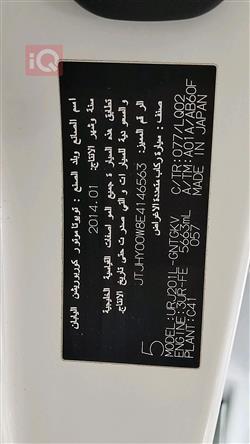 iQ
اسم الصانع وبلد الصنع : تويوتا موتور كوربوريشن اليابان
سنة وشهر الانتاج: 2014.01
تطابق هذه السيارة جميع المواصفات القياسية الخليجية
والسعودية للسيارات والتي صدرت حتى تاريخ الإنتاج.
الرقم المميز: JTJHY00W8E4146563
صنف : سيارة ركاب متعددة الأغراض
5
MODEL:URJ201L-GNTGKV
ENGINE:3UR-FE 5663mL
PLANT:C41 057
C/TR:077/LQ02
A/TM:A01A/AB60F
MADE IN JAPAN